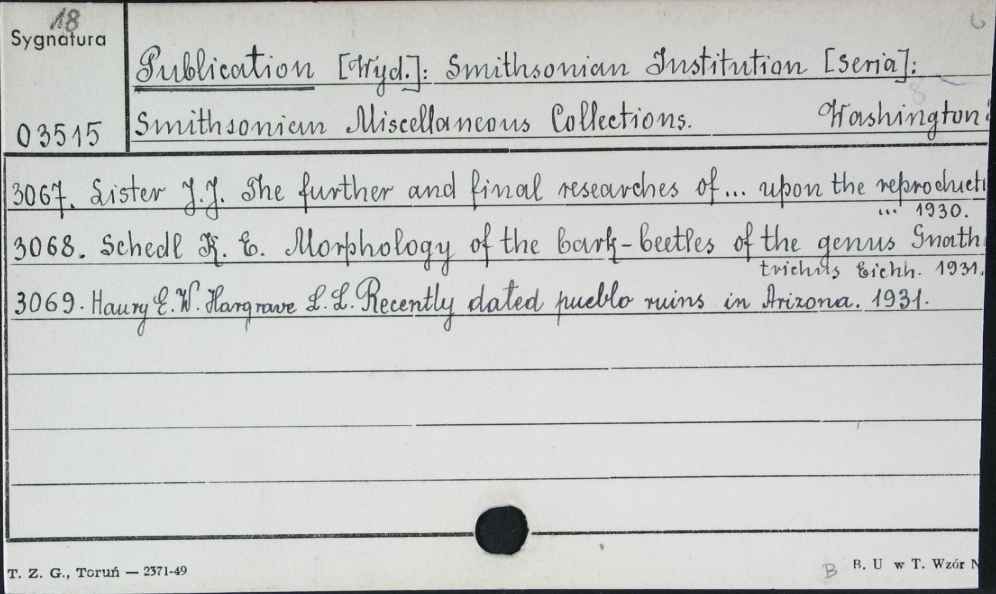 18
Sygnatura
6
Publication [Wyd.]: Smithsonian Institution [seria]:
8
03515
Smithsonian Miscellaneous Collections. Washington
3067. Lister J.J. The further and final researches of... upon the reproducti
... 1930.
3068. Schedl K. E. Morphology of the bark-beetles of the genus Gnath
trichus Eichh. 1931.
3069. Haury E. W. Hargrave L. L. Recently dated pueblo ruins in Arizona. 1931.
T. Z. G., Toruń — 2371-49
B
B. U w T. Wzór N